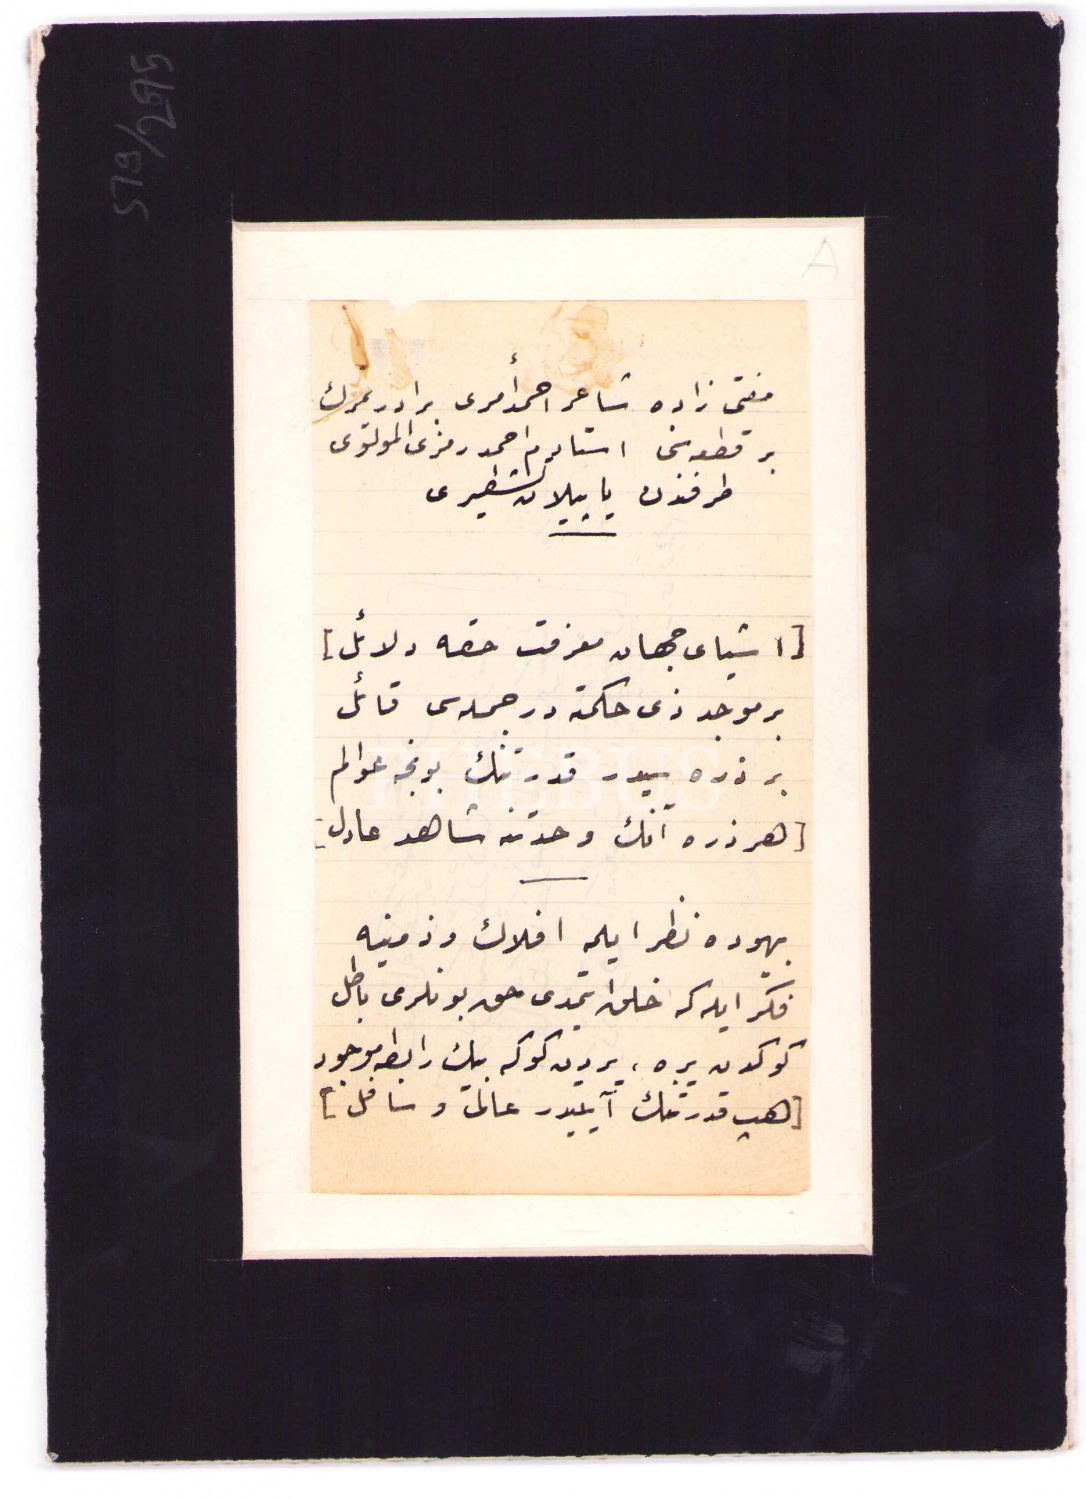 579/2595
A
مفتی زاده شاعر احمد أمری برادریمزك
بر قطعه‌سنی استادم احمد رمزی المولوی
طرفندن یاپیلان تشطیری
[اشیای جهان معرفت حقه دلائل]
بر موجد ذی حكمته در جمله‌سی قائل
بر ذره سیدر قدرتنك بونجه عوالم
[هر ذره آنك وحدتنه شاهد عادل]
بیهوده نظر ایلمه افلاك و زمینه
فكر ایله كه خلق ایتمدی حق بونلری باطل
كوكدن یره ، یردن كوكه بیك رابطه موجود
[هپ قدرتنك آیتیدر عالی و سافل]
PHEBUS